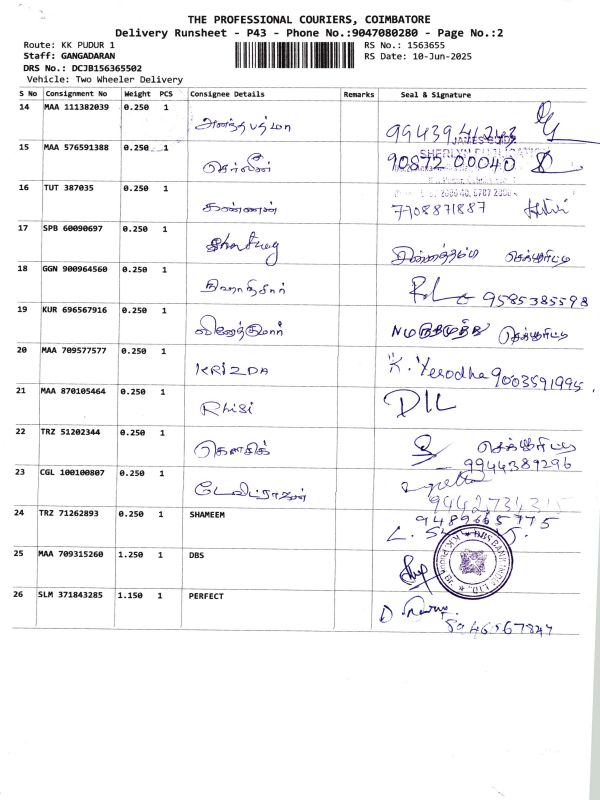 THE PROFESSIONAL COURIERS, COIMBATORE
Delivery Runsheet - P43 - Phone No.:9047080280 - Page No.:2
Route: KK PUDUR 1 RS No.: 1563655
Staff: GANGADARAN RS Date: 10-Jun-2025
DRS No.: DCJB156365502
Vehicle: Two Wheeler Delivery
S No Consignment No Weight PCS Consignee Details Remarks Seal & Signature
14 MAA 111382039 0.250 1
ஆனந்தபத்மா 9943941243
15 MAA 576591388 0.250 1
செர்லின் 90872 00040
16 TUT 387035 0.250 1
கண்ணன் 7708871887
17 SPB 60090697 0.250 1
செக்யூரிட்டி
18 GGN 900964560 0.250 1
9585385598
19 KUR 696567916 0.250 1
வினோத்குமார் செக்யூரிட்டி
20 MAA 709577577 0.250 1
KRIZDA K. Yesodha 9003591995
21 MAA 870105464 0.250 1
Rhisi
22 TRZ 51202344 0.250 1
கௌசிக் செக்யூரிட்டி
9944389296
23 CGL 100100807 0.250 1
டேவிட்ராஜன் 9442734315
24 TRZ 71262893 0.250 1 SHAMEEM 9489665775
25 MAA 709315260 1.250 1 DBS
DBS BANK INDIA LTD
26 SLM 371843285 1.150 1 PERFECT